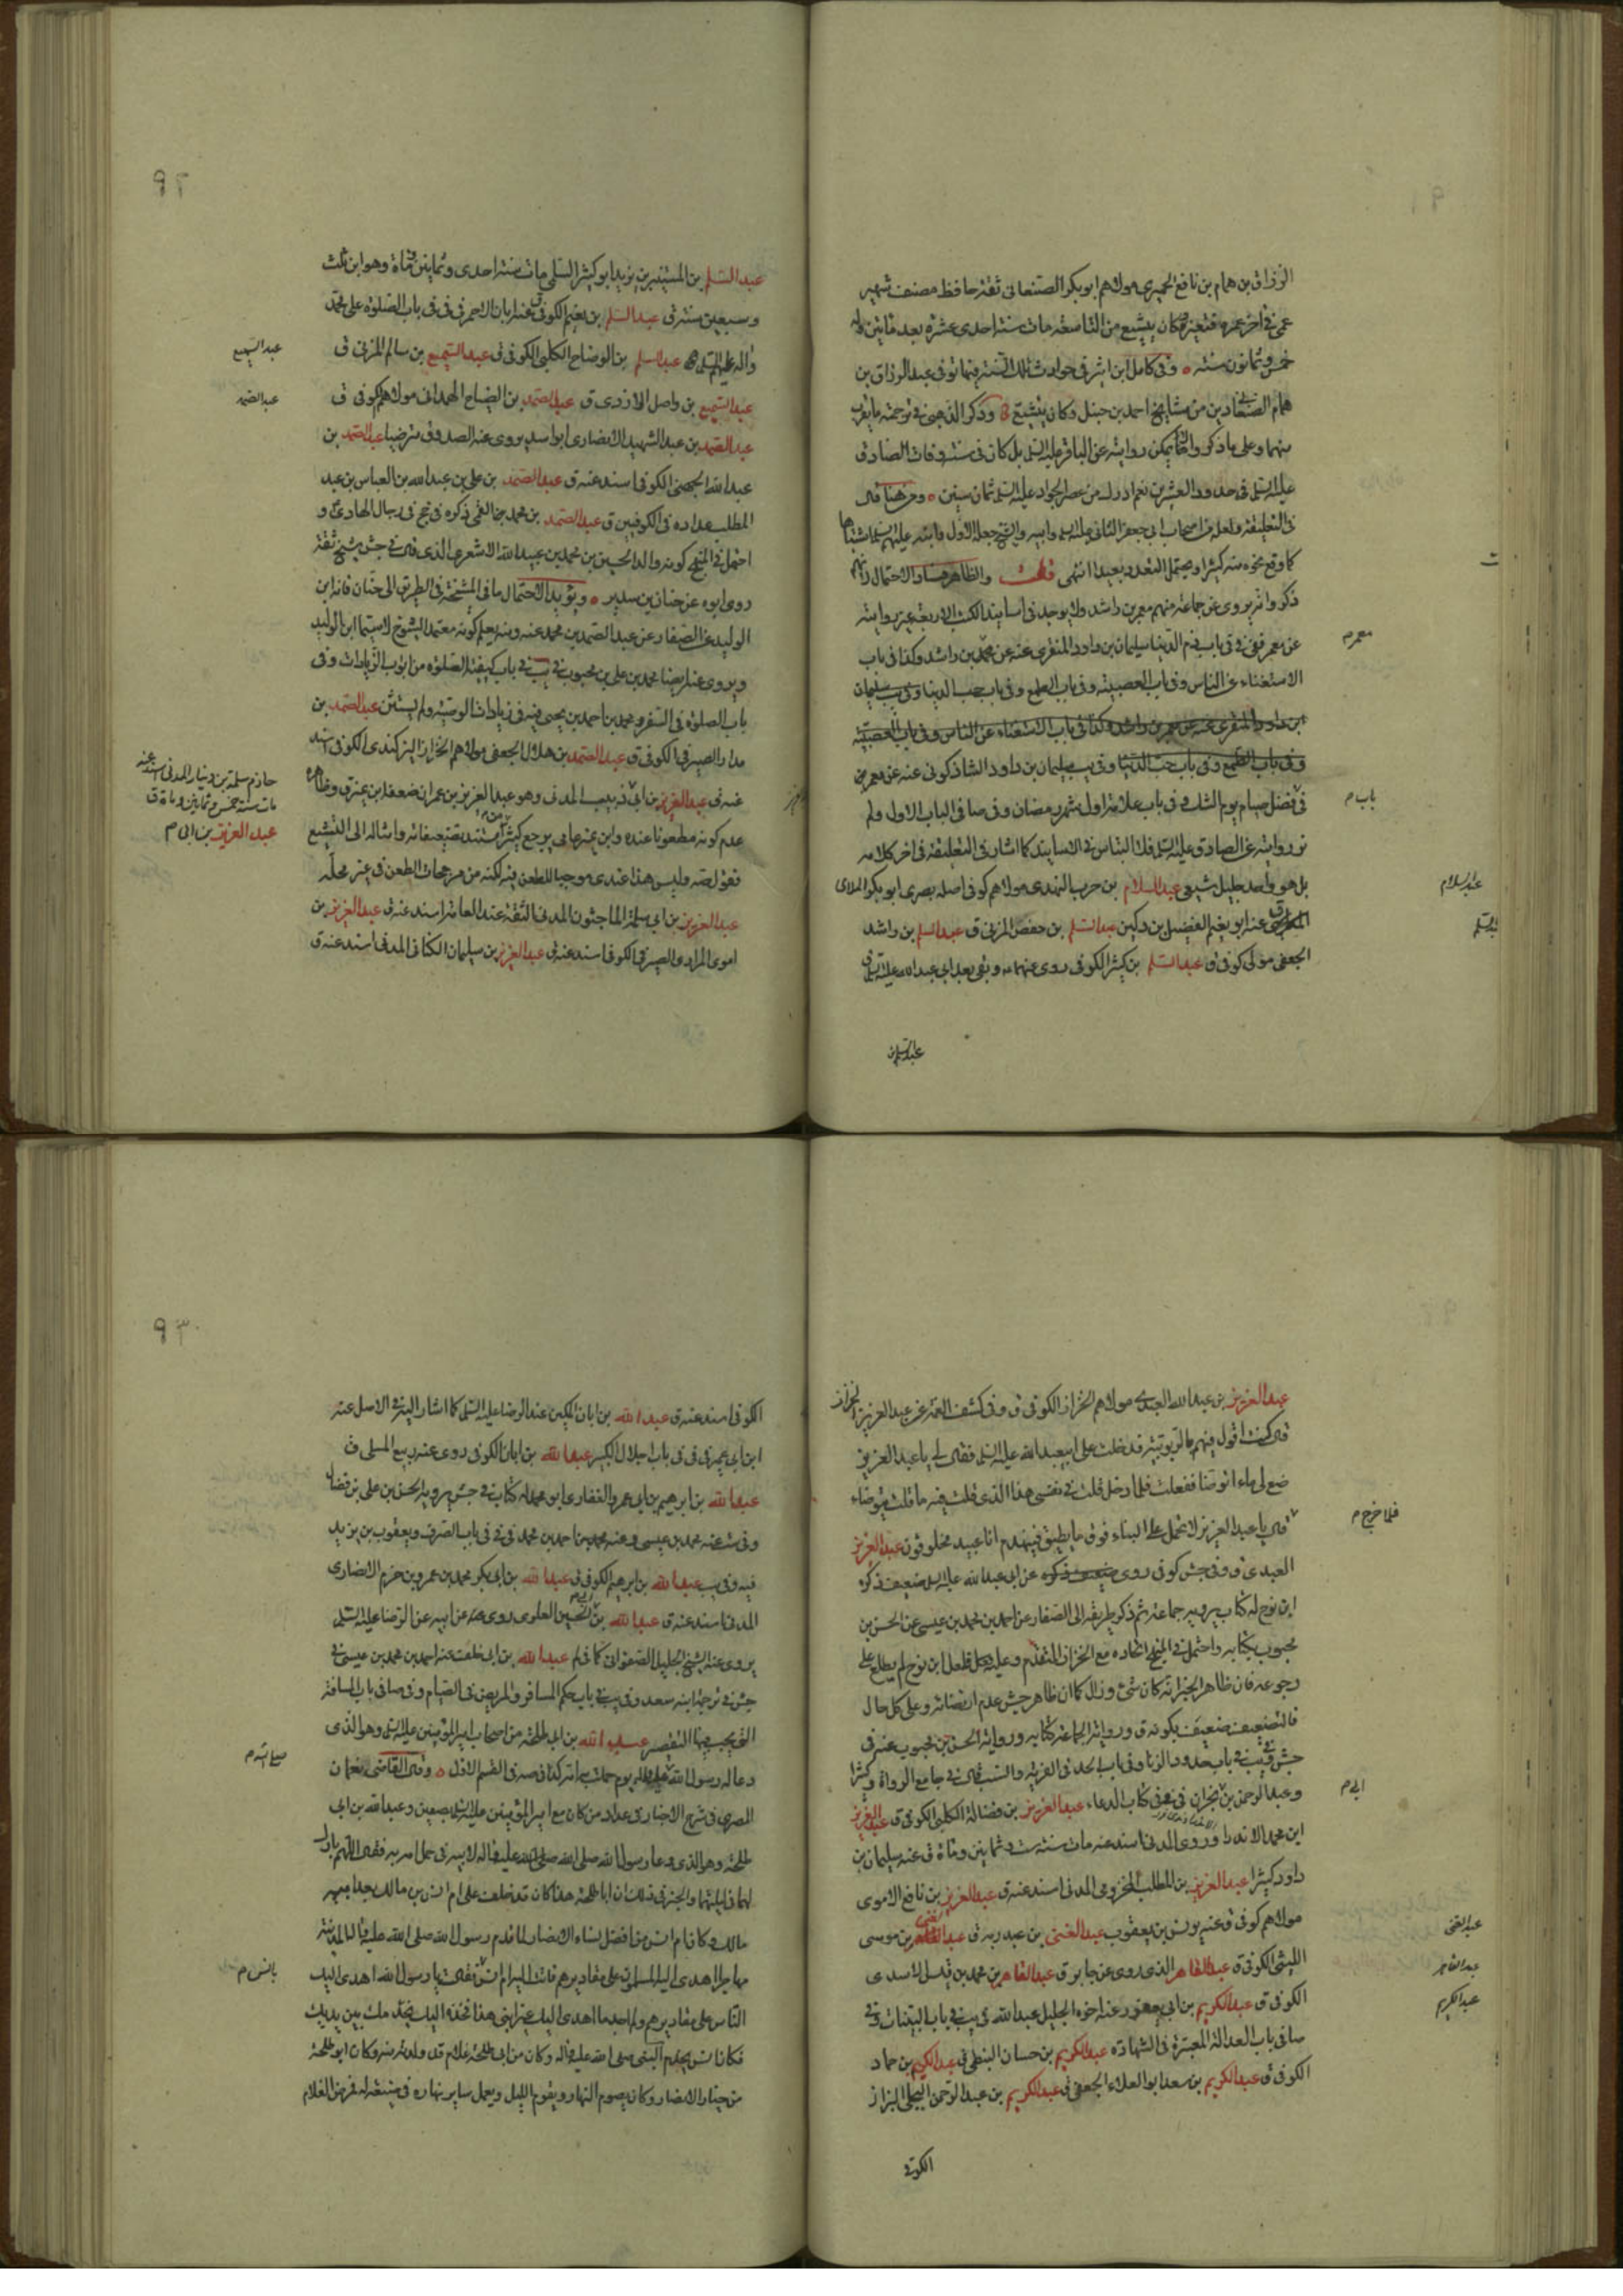 الرزاق بن همام بن نافع الحميري مولاهم ابو بكر الصنعاني ثقة حافظ مصنف شهير
عمي في اخر عمره فتغير وكان يتشيع من التاسعة مات سنة احدى عشرة بعد مأتين وله
خمس وثمانون سنة ٥ وفي كامل ابن اثير في حوادث تلك السنة فيها توفي عبد الرزاق بن
همام الصنعاني من مشايخ احمد بن حنبل وكان يتشيع وذكر الذهبي في ترجمته ما يقرب
منهما وعلى ما ذكروا لا يمكن روايته عن الباقر عليه السلم بل كان في سنة وفات الصادق
عليه السلم في حدود العشرين نعم ادرك من عصر الجواد عليه السلم ثمان سنين ٥ ومن هنا قال
في التعليقة ولعله من اصحاب ابي جعفر الثاني عليه السلم
كما وقع نحوه منه كثيرا ويحتمل التعدد بعيدا انتهى قلت والظاهر هنا والاحتمال
ذكروا انه يروي عن جماعة منهم معمر بن راشد ولا يوجد في اسانيد الكتب الاربعة غير روايته
عن معمر ففي في باب ذم الدنيا سليمان بن داود المنقري عنه عن بن راشد وكذا في باب
معمر م
الاستغناء عن الناس وفي باب العصبية وفي باب الطمع وفي باب حب الدنيا وفي يب سليمان
ابن داود المنقري عنه عن معمر بن راشد وكذا في باب الاستغناء عن الناس وفي باب العصبية
وفي باب الطمع وفي باب حب الدنيا وفي يب سليمان بن داود الشاذكوني عنه عن معمر بن
في فضل صيام يوم الشك وفي باب علامة اول شهر رمضان وفي صا في الباب الاول ولم
باب م
نر روايته عن الصادق عليه السلم في الاسانيد كما اشار في التعليقة في اخر كلامه
بل هو واحد جليل شيعي عبد السلام بن حرب النهدي مولاهم كوفي اصله بصري ابو بكر الملائي
عبد السلام
عنه ابو نعيم الفضيل بن دكين عبد السلم بن حفص المزني ق عبد السلم بن راشد
الجعفي مولى كوفي ق عبد السلم بن كثير الكوفي روى عنهما وبقي بعد ابي عبد الله عليه السلم
٩٢
عبد السلم بن المستنير بن يزيد ابو كثير السلمي مات سنة احدى وثمانين ومأة وهو ابن ثلث
وسبعين سنة ق عبد السلم بن نعيم الكوفي ق عنه ابان الاحمر في في باب الصلوة على محمد
واله عليهم السلم عبد السلم بن الوضاح الكلبي الكوفي ق عبد السميع بن سالم المزني ق
عبد السميع
عبد السميع بن واصل الازدي ق عبد الصمد بن الصباح الهمداني مولاهم كوفي ق
عبد الصمد
عبد الصمد بن عبد الشهيد الانصاري ابو اسد يروي عنه الصدوق مترضيا عبد الصمد بن
عبد الله الجهني الكوفي اسند عنه ق عبد الصمد بن علي بن عبد الله بن العباس بن عبد
المطلب عداده في الكوفيين ق عبد الصمد بن محمد القمي ذكره في جخ في رجال الهادي ع و
احتمل في المنهج كونه والد الحسين بن محمد بن عبيد الله الاشعري الذي قال في جش شيخ ثقة
روى ابوه عن حنان بن سدير ٥ ويؤيد الاحتمال ما في المشيخة في الطريق الى حنان فانه ابن
الوليد عن الصفار عن عبد الصمد بن محمد عنه ومنه يعلم كونه معتمد الشيوخ لا سيما ابن الوليد
ويروي عنه ايضا محمد بن علي بن محبوب في يب في باب كيفية الصلوة من ابواب الزيادات وفي
باب الصلوة في السفر ومحمد بن احمد بن يحيى فيه في زيادات الوصية ولم يستثن عبد الصمد بن
مدار الصيرفي الكوفي ق عبد الصمد بن هلال الجعفي مولاهم الخزاز الكوفي اسند
عنه ق عبد العزيز بن ابي ذيب المدني وهو عبد العزيز بن عمران ضعفه ابن نمير ق وظاهره
حازم سلمة بن دينار المدني اسند عنه
مات سنة خمس وثمانين ومأة ق
عبد العزيز بن ابي م
عدم كونه مطعونا عنده وابن نمير عامي يرجع كثيرا تضعيفاته وامثاله الى التشيع
عندي موجبا للطعن فيه لكنه من مرجحات الطعن في غير محله
عبد العزيز بن ابي سلمة الماجشون المدني الثقة عند العامة اسند عنه ق عبد العزيز بن
اموى المرادي الصيرفي الكوفي اسند عنه ق عبد العزيز بن سليمان الكناني المدني اسند عنه ق
عبد العزيز بن عبد الله العبدي مولاهم الخزاز الكوفي ق وفي كشف الغمة عن عبد العزيز الخزاز
قال كنت اقول فيهم بالربوبية فدخلت على ابي عبد الله عليه السلم فقال لي يا عبد العزيز
ضع لي ماء اتوضا ففعلت فلما دخل قلت في نفسي هذا الذي قلت فيه ما قلت يتوضاء
فلما خرج م
قال يا عبد العزيز لا تحمل على البناء فوق ما يطيق فينهدم انا عبيد مخلوقون عبد العزيز
العبدي ق وفي جش كوفي روى عن ابي عبد الله عليه السلم ضعيف ذكره
ابن نوح له كتاب يرويه جماعة ثم ذكر طريقه الى الصفار عن احمد بن محمد بن عيسى عن الحسن بن
محبوب بكتابه واحتمل في المنهج اتحاده مع الخزاز المتقدم وعليه فلعل ابن نوح لم يطلع على
رجوعه فان ظاهر الخبر انه كان شيء وزال كما ان ظاهر جش عدم ارتضائه وعلى كل حال
فالتضعيف ضعيف بكونه ق ورواية الجماعة كتابه ورواية الحسن بن محبوب عنه في
جش في يب في باب حدود الزنا وفي باب الحد في الفرية والسب قال في جامع الرواة وكثيرا
وعبد الرحمن بن نجران في في كتاب الدعاء عبد العزيز بن فضالة الكلبي الكوفي ق عبد العزيز
ابي م
ابن محمد الاندراوردي المدني اسند عنه مات سنة ست وثمانين ومأة ق عنه سليمان بن
داود كثيرا عبد العزيز بن المطلب المخزومي المدني اسند عنه ق عبد العزيز بن نافع الاموي
مولاهم كوفي ق عنه يونس بن يعقوب عبد الغني بن عبد ربه ق بن موسى
عبد الغني
الليثي الكوفي ق عبد القاهر الذي روى عن جابر ق عبد القاهر بن محمد بن قيس الاسدي
عبد القاهر
الكوفي ق عبد الكريم بن ابي يعفور عنه اخوه الجليل عبد الله في يب في باب البينات وفي
عبد الكريم
صا في باب العدالة المعتبرة في الشهادة عبد الكريم بن حسان النبطي ق عبد الكريم بن حماد
الكوفي ق عبد الكريم بن سعد ابو العلاء الجعفي ق عبد الكريم بن عبد الرحمن البجلي البزاز
الكوفي
٩٣
الكوفي اسند عنه ق عبد الله بن ابان المكين عند الرضا عليه السلم كما اشار اليه في الاصل عنه
ابن ابي عمير في في في باب اجلال الكبير عبد الله بن ابان الكوفي روى عنه ربيع المسلي ق
عبد الله بن ابرهيم بن ابي عمرو الغفاري ابو محمد له كتاب في جش يرويه الحسن بن علي بن فضال
وفي ست عنه محمد بن عيسى وعنه محمد بن احمد بن محمد في في في باب الصروف ويعقوب بن يزيد
فيه وفي يب عبد الله بن ابرهيم الكوفي ق عبد الله بن ابي بكر محمد بن عمرو بن حزم الانصاري
المدني اسند عنه ق عبد الله بن الحسين العلوي روى عن ابيه عن الرضا عليه السلم
يروي عنه الشيخ الجليل الصفواني كما في لم عبد الله بن ابي خلف عنه احمد بن محمد بن عيسى في
جش في ترجمة ابنه سعد وفي يب في باب حكم المسافر والمريض في الصيام وفي صا في باب المسافة
التي يجب فيها التقصير عبد الله بن ابي طلحة من اصحاب امير المؤمنين عليه السلم وهو الذي
دعا له رسول الله يوم حملت به امه كذا في صه في القسم الاول ٥ وقال القاضي نعمان
صلى الله م
المصري في شرح الاخبار في عداد من كان مع امير المؤمنين عليه السلم بصفين وعبد الله بن ابي
طلحة وهو الذي دعا رسول الله صلى الله عليه واله لابيه في حمل امه به فقال اللهم بارك
لهما في ليلتهما والخبر في ذلك ان ابا طلحة هذا كان قد خلف على ام انس بن مالك بعد ابيه
مالك وكان ام انس من افضل نساء الانصار لما قدم رسول الله صلى الله عليه واله المدينة
مهاجرا اهدى اليه المسلمون على مقاديرهم فاتت اليه ام انس فقالت يا رسول الله اهدى اليك
بانس م
الناس على مقاديرهم ولم اجد ما اهدي اليك غير ابني هذا فخذه اليك يخدمك بين يديك
فكان انس يخدم النبي صلى الله عليه واله وكان من ابي طلحة غلام قد ولدته منه وكان ابو طلحة
من خيار الانصار وكان يصوم النهار ويقوم الليل ويعمل سائر نهاره في ضيعة له فمرض الغلام